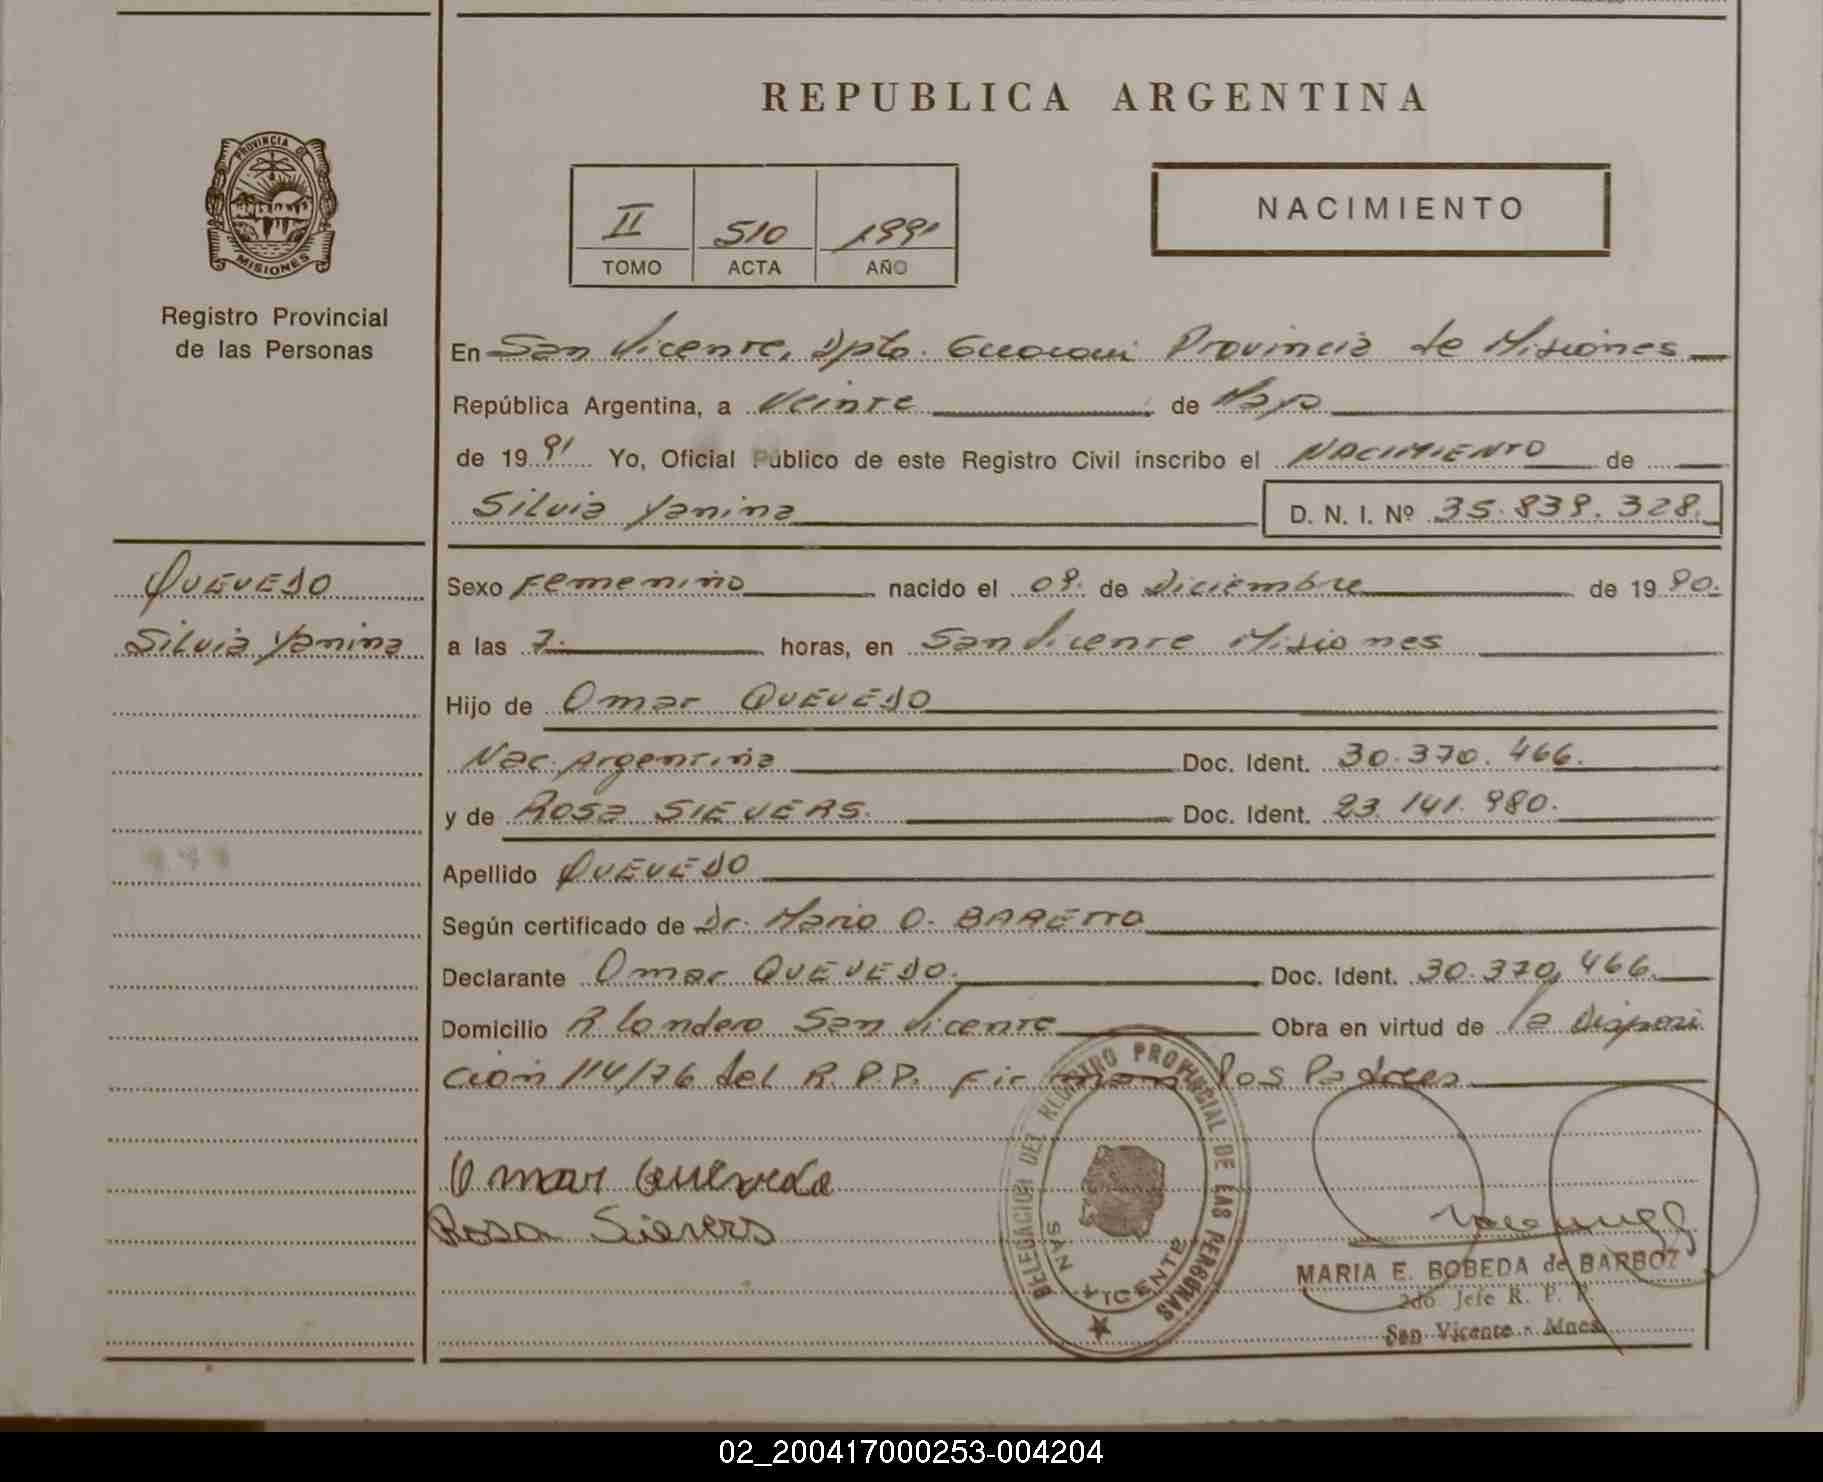 REPUBLICA ARGENTINA
PROVINCIA DE
MISIONES
Registro Provincial
de las Personas
II 510 1991
TOMO ACTA AÑO
NACIMIENTO
En San Vicente, Dpto. Guaraní Provincia de Misiones
República Argentina, a Veinte de Mayo
de 1991 Yo, Oficial Público de este Registro Civil inscribo el NACIMIENTO de
Silvia Yanina D. N. I. Nº 35.839.328.
QUEVEDO
Silvia Yanina
Sexo Femenino nacido el 09. de Diciembre de 1990.
a las 7. horas, en San Vicente Misiones
Hijo de Omar QUEVEDO
Nac. Argentina Doc. Ident. 30.370.466.
y de ROSA SIEVERS. Doc. Ident. 23.141.980.
Apellido QUEVEDO
Según certificado de Dr. Mario O. BARETTO
Declarante Omar QUEVEDO. Doc. Ident. 30.370.466.
Domicilio San Vicente Obra en virtud de la Disposi
ción 114/76 del R.P.P. Firman los Padres
Omar Quevedo
Rosa Sievers
DELEGACION DEL REGISTRO PROVINCIAL DE LAS PERSONAS
SAN VICENTE
MARIA E. BOBEDA de BARBOZ
2do. Jefe R. P. P.
San Vicente - Mnes
02_200417000253-004204